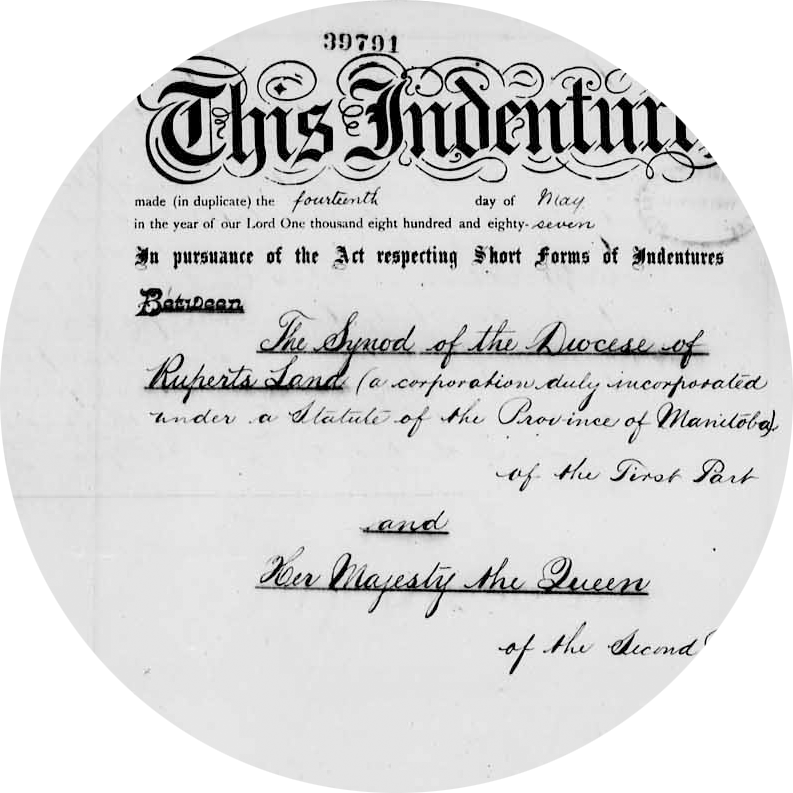 39791
This Indentur
made (in duplicate) the fourteenth day of May
in the year of our Lord One thousand eight hundred and eighty-seven
In pursuance of the Act respecting Short Forms of Indentures
Between
The Synod of the Diocese of
Ruperts Land (a corporation duly incorporated
under a Statute of the Province of Manitoba).
of the First Part
and
Her Majesty the Queen
of the Second